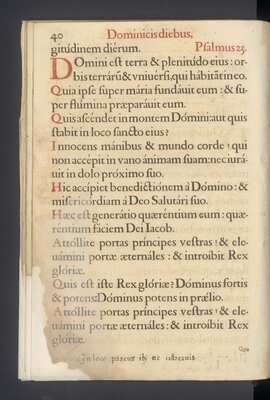 40
Dominicis diebus,
gitúdinem diérum. Psalmus 23.
DOmini est terra & plenitúdo eius: or-
bis terrárũ & vniuersi, qui hábitãt in eo.
Quia ipse super mária fundáuit eum: & su-
per flúmina præparáuit eum.
Quis ascéndet in montem Dómini: aut quis
stabit in loco sancto eius?
Innocens mánibus & mundo corde, qui
non accépit in vano ánimam suam: nec iurá-
uit in dolo próximo suo.
Hic accípiet benedictiónem á Dómino: &
misericórdiam á Deo Salutári suo.
Hæc est generátio quæréntium eum: quæ-
réntium fáciem Dei Iacob.
Attóllite portas príncipes vestras, & ele-
uámini portæ æternáles: & introíbit Rex
glóriæ.
Quis est iste Rex glóriæ? Dóminus fortis
& potens: Dóminus potens in prælio.
Attóllite portas príncipes vestras, & ele-
uámini portæ æternáles: & introíbit Rex
glóriæ.